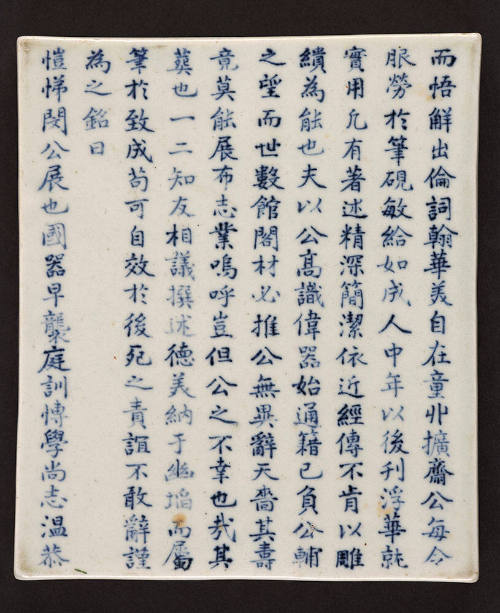 而悟解出倫詞翰華美自在童丱擴齋公每令
服勞於筆硯敏給如成人中年以後刊浮華就
實用凡有著述精深簡潔依近經傳不肯以雕
繢為能也夫以公高識偉器始通籍已負公輔
之望而世數館閣材必推公無異辭天嗇其壽
竟莫能展布志業嗚呼豈但公之不幸也哉其
葬也一二知友相議撰述德美納于幽塪而屬
筆於致成苟可自效於後死之責誼不敢辭謹
為之銘曰
愷悌閔公展也國器早襲庭訓博學尚志溫恭